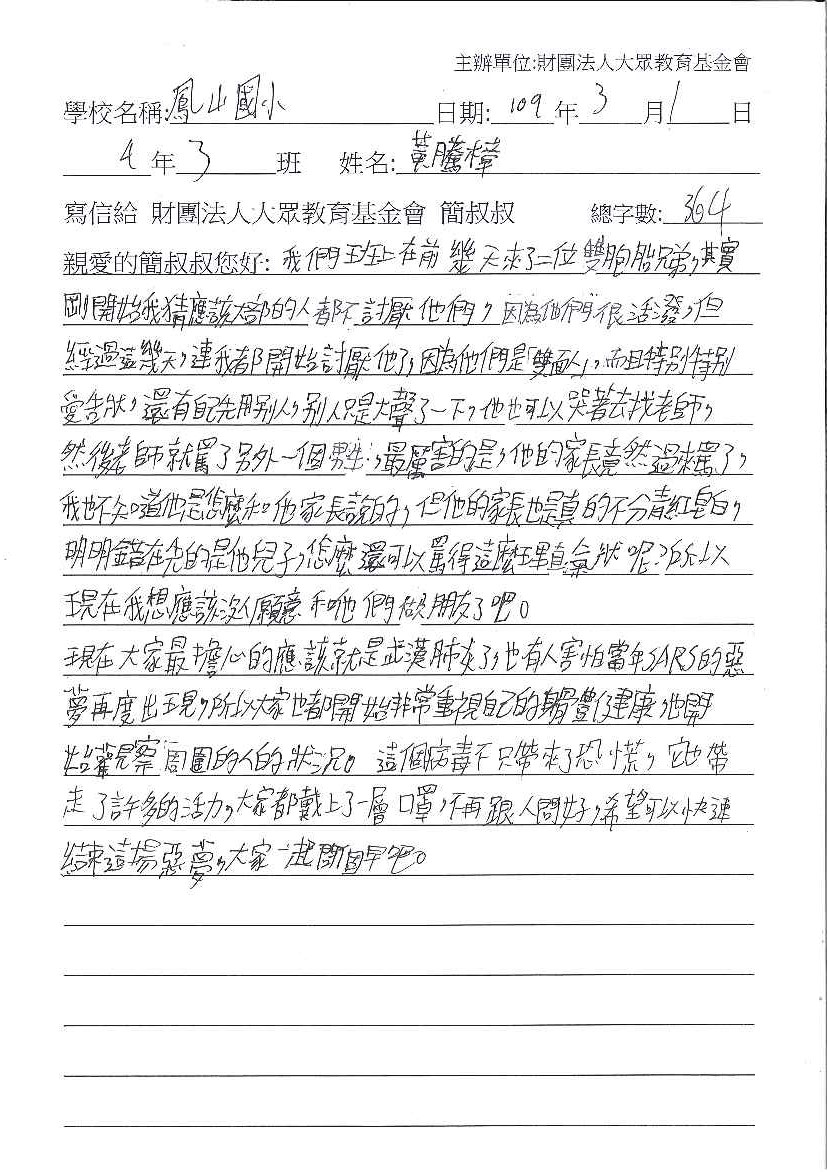 主辦單位:財團法人大眾教育基金會
學校名稱:鳳山國小 日期: 109 年 3 月 1 日
4 年 3 班 姓名: 黃騰樟
寫信給 財團法人大眾教育基金會 簡叔叔 總字數: 364
親愛的簡叔叔您好: 我們班上在前幾天來了二位雙胞胎兄弟,其實
剛開始我猜應該大部的人都不討厭他們,因為他們很活潑,但
經過這幾天,連我都開始討厭他了,因為他們是「雙面人」,而且特別特別
愛告狀,還有自己先用別人,別人只是大聲了一下,他也可以哭著去找老師,
然後老師就罵了另外一個男生,最厲害的是,他的家長竟然過來罵了,
我也不知道他是怎麼和他家長說的,但他的家長也是真的不分青紅皂白,
明明錯在先的是他兒子,怎麼還可以罵得這麼理直氣狀呢?所以
現在我想應該沒人願意和他們做朋友了吧。
現在大家最擔心的應該就是武漢肺炎了,也有人害怕當年SARS的惡
夢再度出現,所以大家也都開始非常重視自己的身體健康,也開
始觀察周圍的人的狀況。這個病毒不只帶來了恐慌,它也帶
走了許多的活力,大家都戴上了一層口罩,不再跟人問好,希望可以快速
結束這場惡夢,大家一起問個早吧。